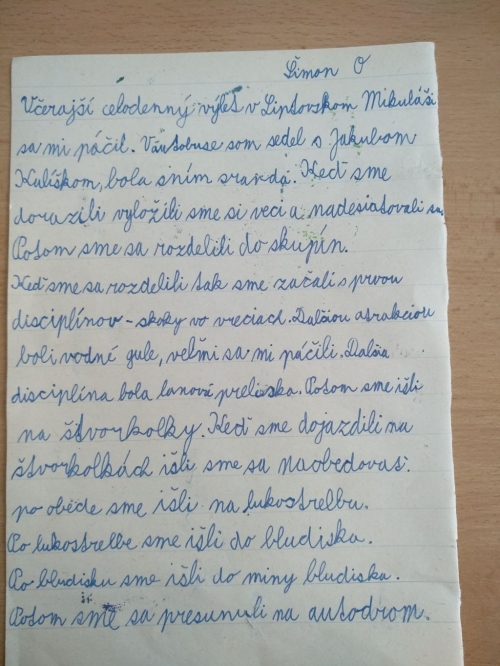 Šimon O
Včerajší celodenný výlet v Liptovskom Mikuláši
sa mi páčil. Vautobuse som sedel s Jakubom
Kuliškom, bola sním sranda. Keď sme
dorazili vyložili sme si veci a nadesiatovali sa.
Potom sme sa rozdelili do skupín.
Keď sme sa rozdelili tak sme začali s prvou
disciplínov - skoky vo vreciach. Dalšiou atrakciou
boli vodné gule, veľmi sa mi páčili. Dalšia
disciplína bola lanová preliezka. Potom sme išli
na štvorkolky. Keď sme dojazdili na
štvorkolkách išli sme sa naobedovať.
po obede sme išli na lukostrelbu.
Po lukostrelbe sme išli do bludiska.
Po bludisku sme išli do miny bludiska.
Potom sme sa presunuli na autodrom.